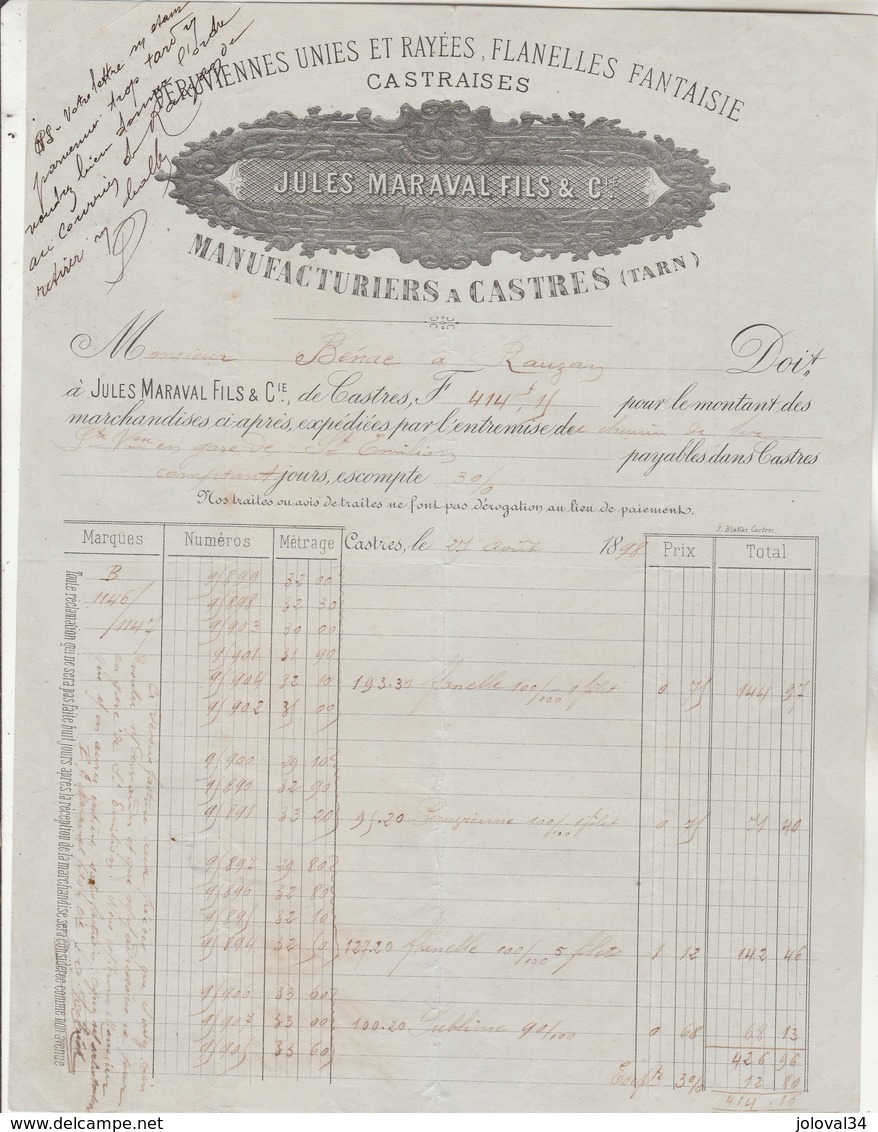 PS - Votre lettre m'étant
parvenue trop tard
voudrez bien donner l'ordre
au courrier de Rauzan de
retirer
PÉRUVIENNES UNIES ET RAYÉES, FLANELLES FANTAISIE
CASTRAISES
JULES MARAVAL FILS & CIE
MANUFACTURIERS A CASTRES (TARN)
Monsieur Bénac à Rauzan Doit
à JULES MARAVAL FILS & CIE., de Castres, F 414 pour le montant des
marchandises ci-après, expédiées par l'entremise de chemin de fer
en gare de St Emilion payables dans Castres
comptant jours, escompte 3%
Nos traites ou avis de traites ne font pas dérogation au lieu de paiement.
J. Blattes, Castres.
Marques Numéros Métrage Castres, le 27 août 1898 Prix Total
B 9/899 32 00
1146/ 9/898 32 30
/1147 9/903 30 00
9/901 31 90
9/904 32 10 193.30 flanelle 100/100 1 filet 0 75 144 97
9/902 35 00
9/900 29 10
9/890 32 90
9/891 33 20 95.20 100/100 1 filet 0 75 71 40
9/897 29 80
9/896 32 80
9/895 32 10
9/894 32 50 127.20 flanelle 100/100 5 filets 1 12 142 46
9/906 33 60
9/907 33 00 100.20 Sublime 90/100 0 68 68 13
9/905 33 60
426 96
Escpte 3% 12 80
414 16
Toute réclamation qui ne sera pas faite huit jours après la réception de la marchandise sera considérée comme non-avenue
www.delcampe.net
joloval34